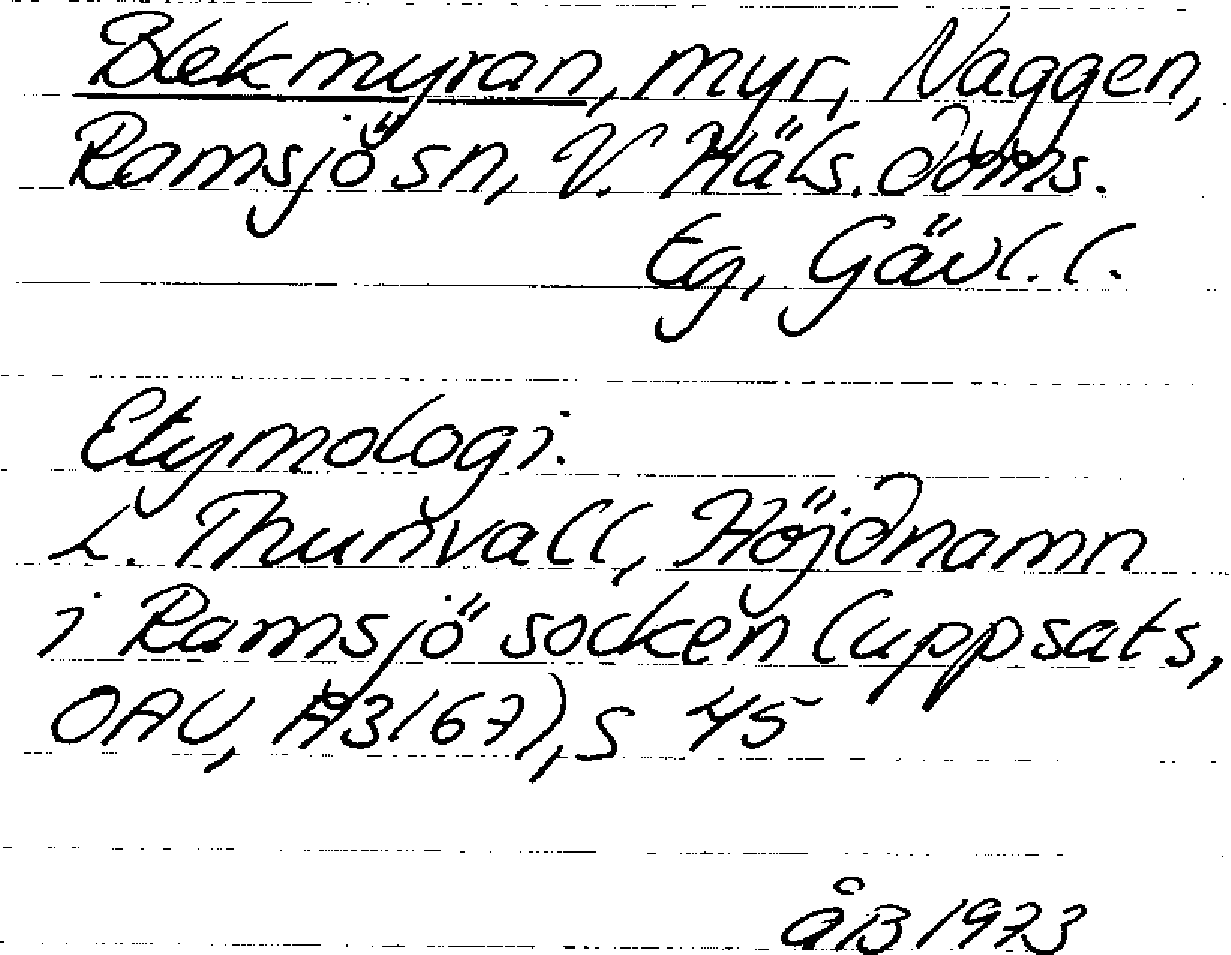 Blekmyran, myr, Naggen,
Ramsjö sn, V. Häls. doms.
tg, Gävl. l.
Etymologi.
L. Thunvall, Höjdnamn
i Ramsjö socken (uppsats,
OAU, A3167), s 45
ÅB 1973